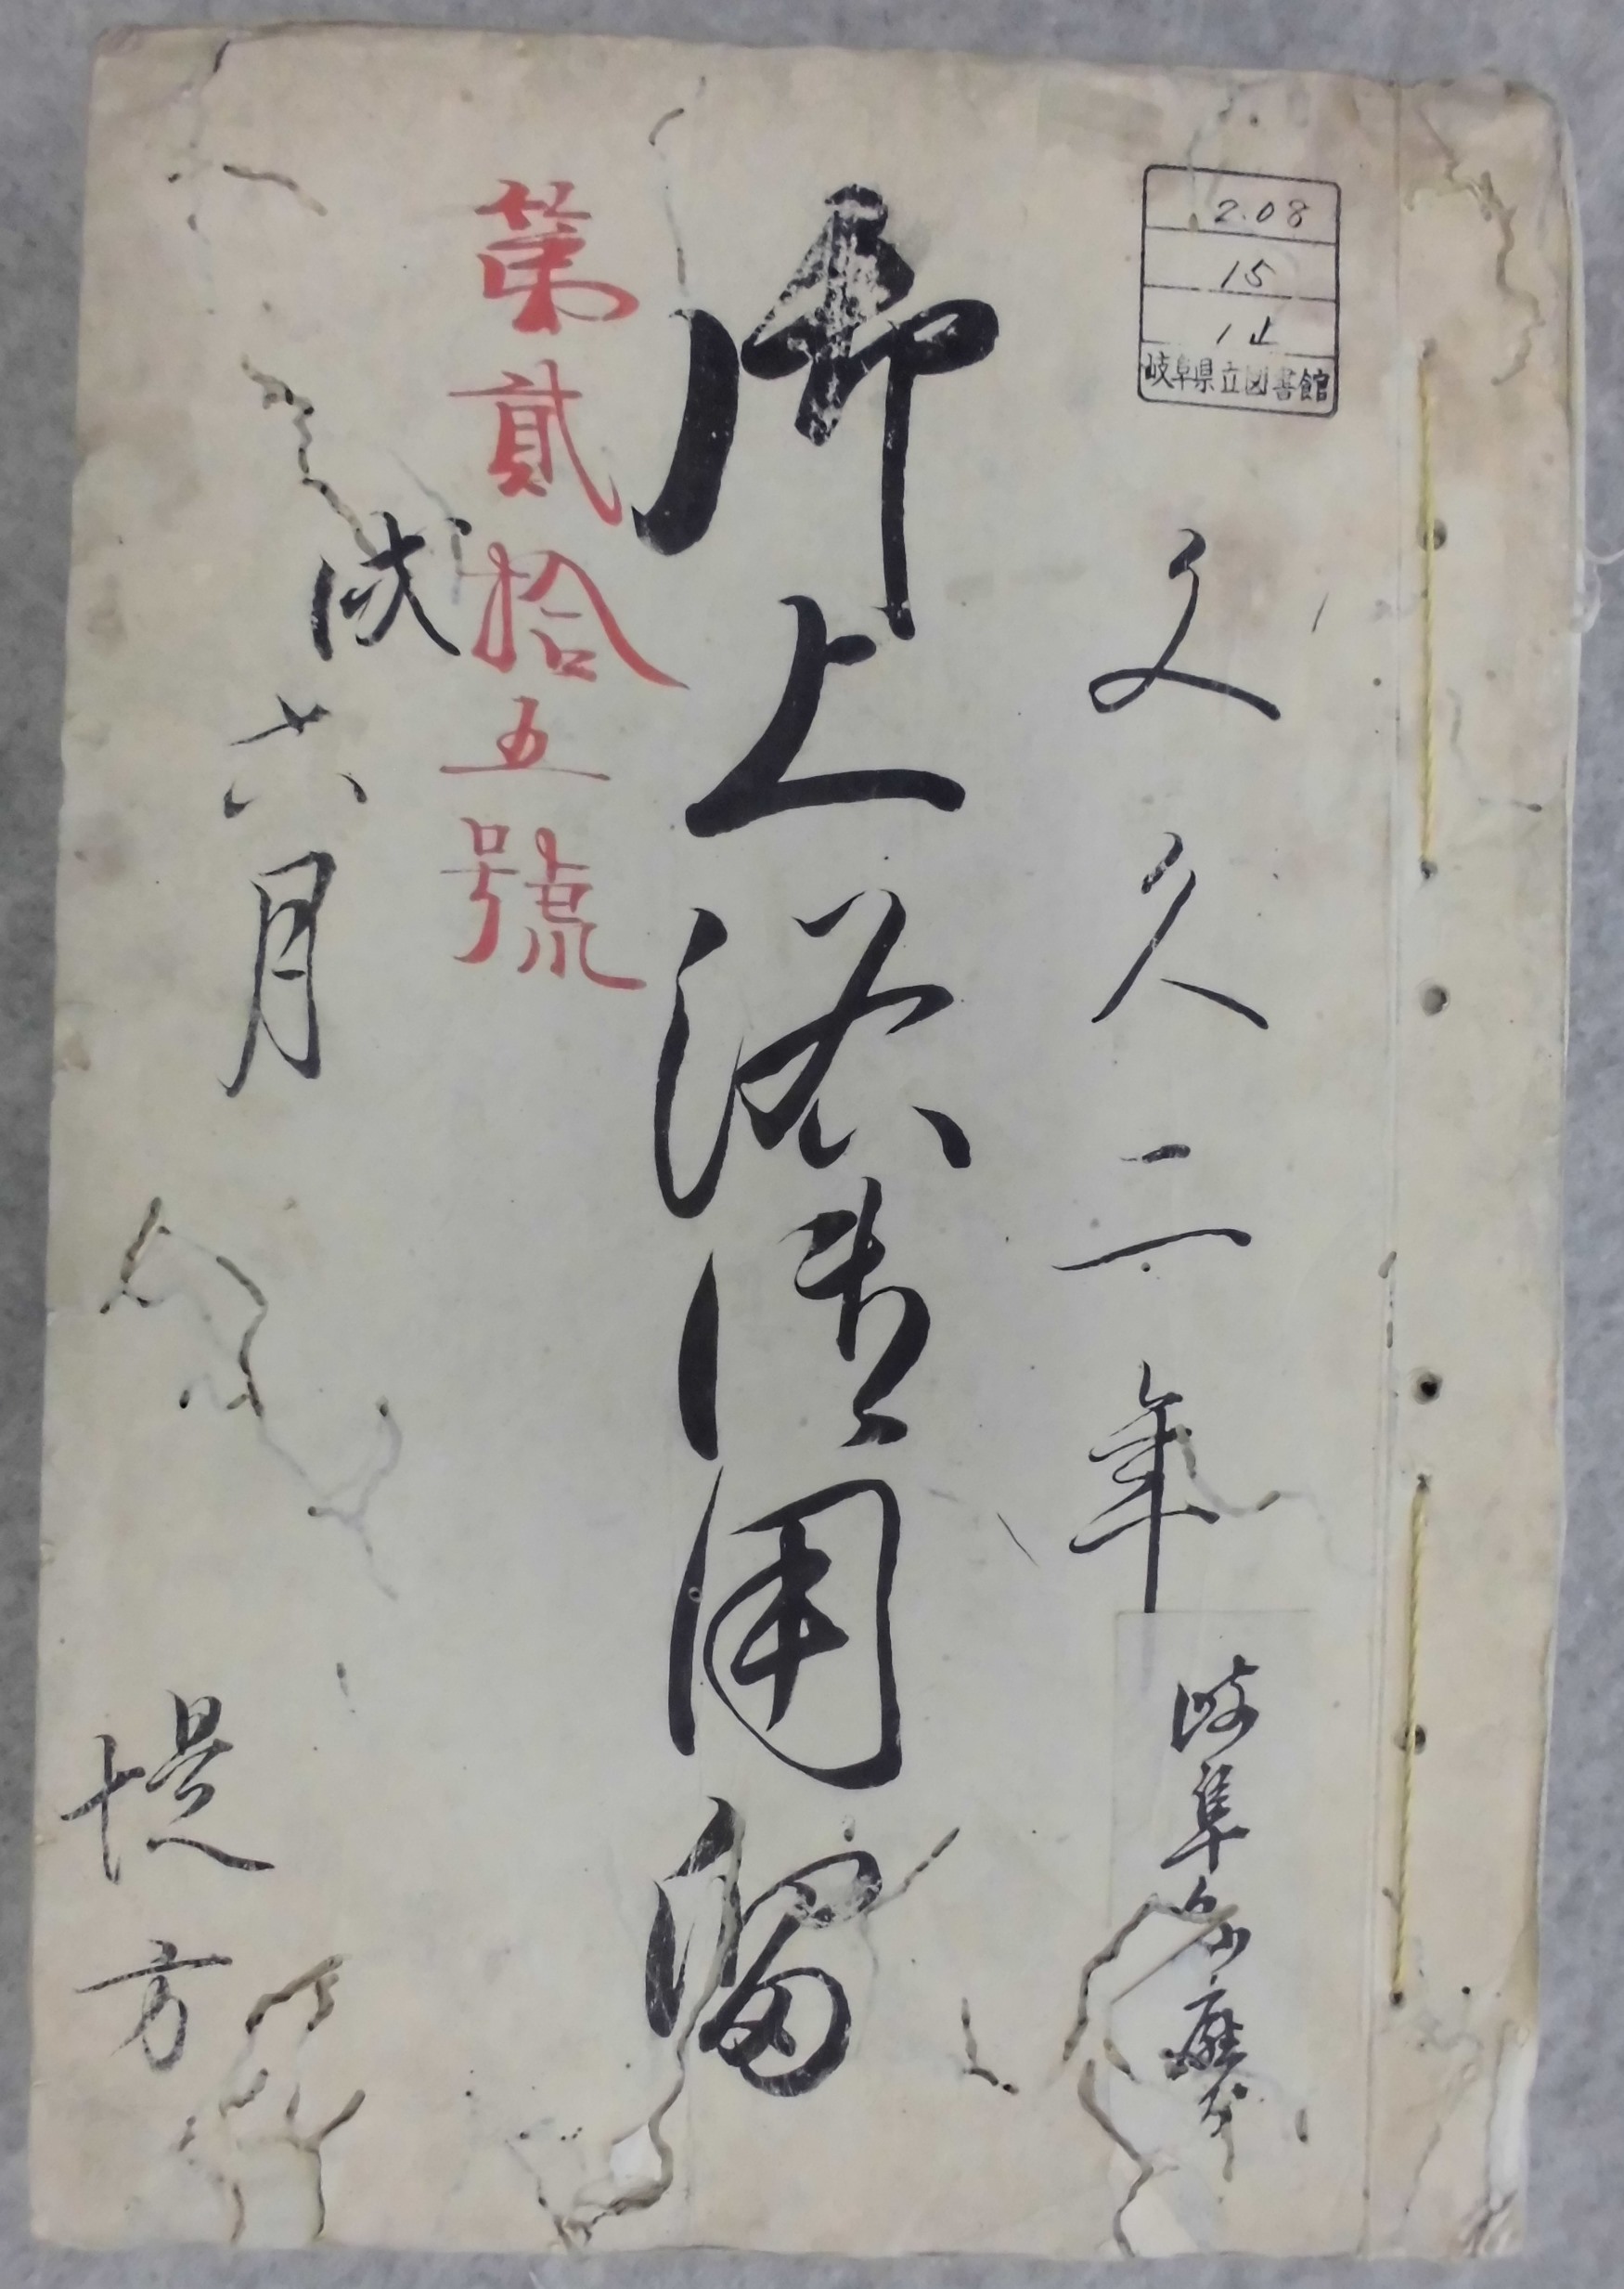 2.08
15
1止
岐阜県立図書館
文久二年
岐阜縣廳本
御上洛御用留
第貳拾五號
戌六月
堤方